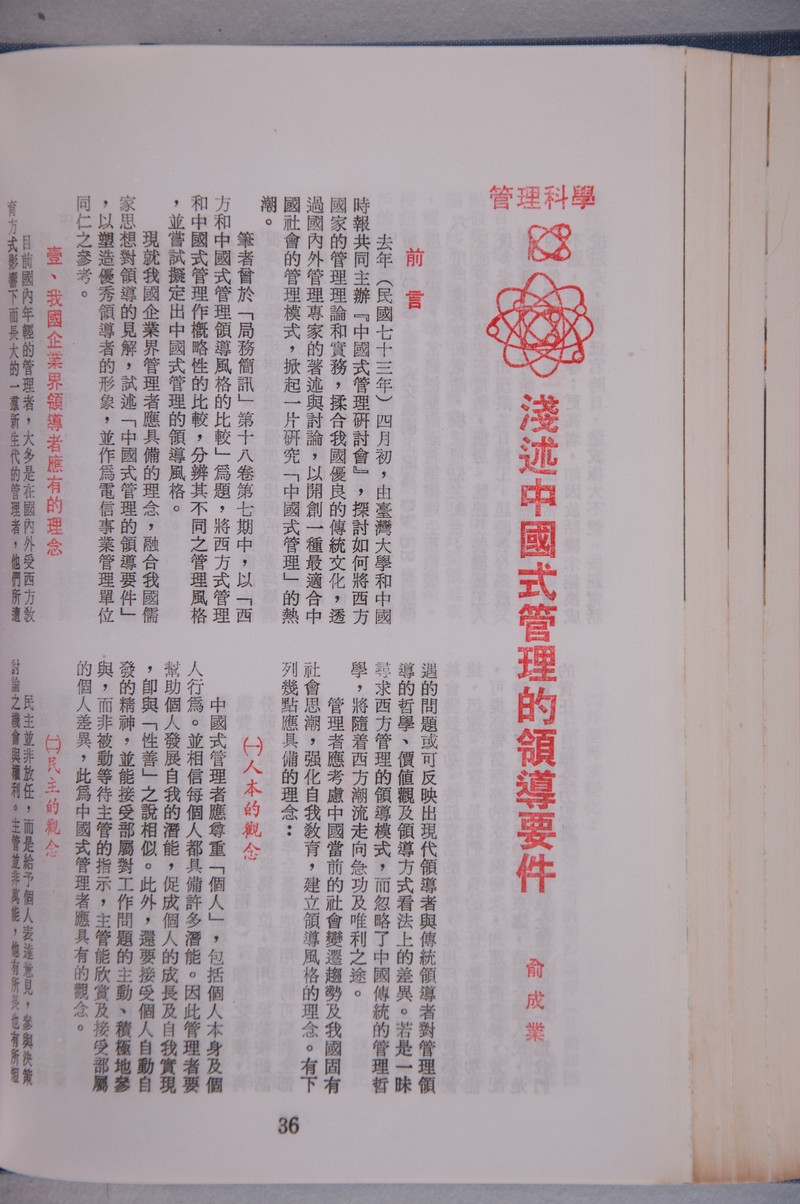 管理科學
淺述中國式管理的領導要件
俞成業
前言
去年（民國七十三年）四月初，由臺灣大學和中國
時報共同主辦『中國式管理研討會』，探討如何將西方
國家的管理理論和實務，揉合我國優良的傳統文化，透
過國內外管理專家的著述與討論，以開創一種最適合中
國社會的管理模式，掀起一片研究「中國式管理」的熱
潮。
筆者曾於「局務簡訊」第十八卷第七期中，以「西
方和中國式管理領導風格的比較」爲題，將西方式管理
和中國式管理作概略性的比較，分辨其不同之管理風格
，並嘗試擬定出中國式管理的領導風格。
現就我國企業界管理者應具備的理念，融合我國儒
家思想對領導的見解，試述「中國式管理的領導要件」
，以塑造優秀領導者的形象，並作爲電信事業管理單位
同仁之參考。
壹、我國企業界領導者應有的理念
目前國內年輕的管理者，大多是在國內外受西方教
育方式影響下而長大的一羣新生代的管理者，他們所遭
遇的問題或可反映出現代領導者與傳統領導者對管理領
導的哲學、價值觀及領導方式看法上的差異。若是一昧
尋求西方管理的領導模式，而忽略了中國傳統的管理哲
學，將隨着西方潮流走向急功及唯利之途。
管理者應考慮中國當前的社會變遷趨勢及我國固有
社會思潮，强化自我敎育，建立領導風格的理念。有下
列幾點應具備的理念：
㈠人本的觀念
中國式管理者應尊重「個人」，包括個人本身及個
人行爲。並相信每個人都具備許多潛能。因此管理者要
幫助個人發展自我的潛能，促成個人的成長及自我實現
，卽與「性善」之說相似。此外，還要接受個人自動自
發的精神，並能接受部屬對工作問題的主動、積極地參
與，而非被動等待主管的指示，主管能欣賞及接受部屬
的個人差異，此爲中國式管理者應具有的觀念。
㈡民主的觀念
民主並非放任，而是給予個人表達意見，參與決策
討論之機會與權利。主管並非萬能，他有所長也有所短
36